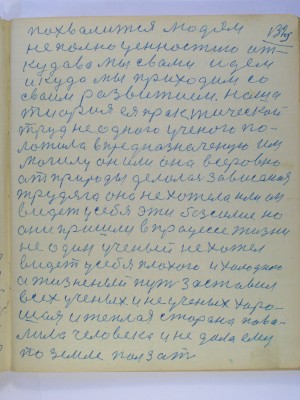 похвалится людям
неполноценностию от-
кудава мы свами идем
и куда мы приходим со
своим развитием. наша
тиория ея практической
труд не одного ученого по-
ложила в предназначеную им
могилу он или она всеровно
от природы делолась зависемая
трудяга она не хотела или он
видет усебя эти безсилие но
они пришли впроцессе жизни
не один ученый не хотел
видет усебя плохого и холоднаго
а жизненый пут заставил
всех ученых и не ученых харо-
шая и теплая сторона пова-
лила человека и не дала ему
по земле ползат